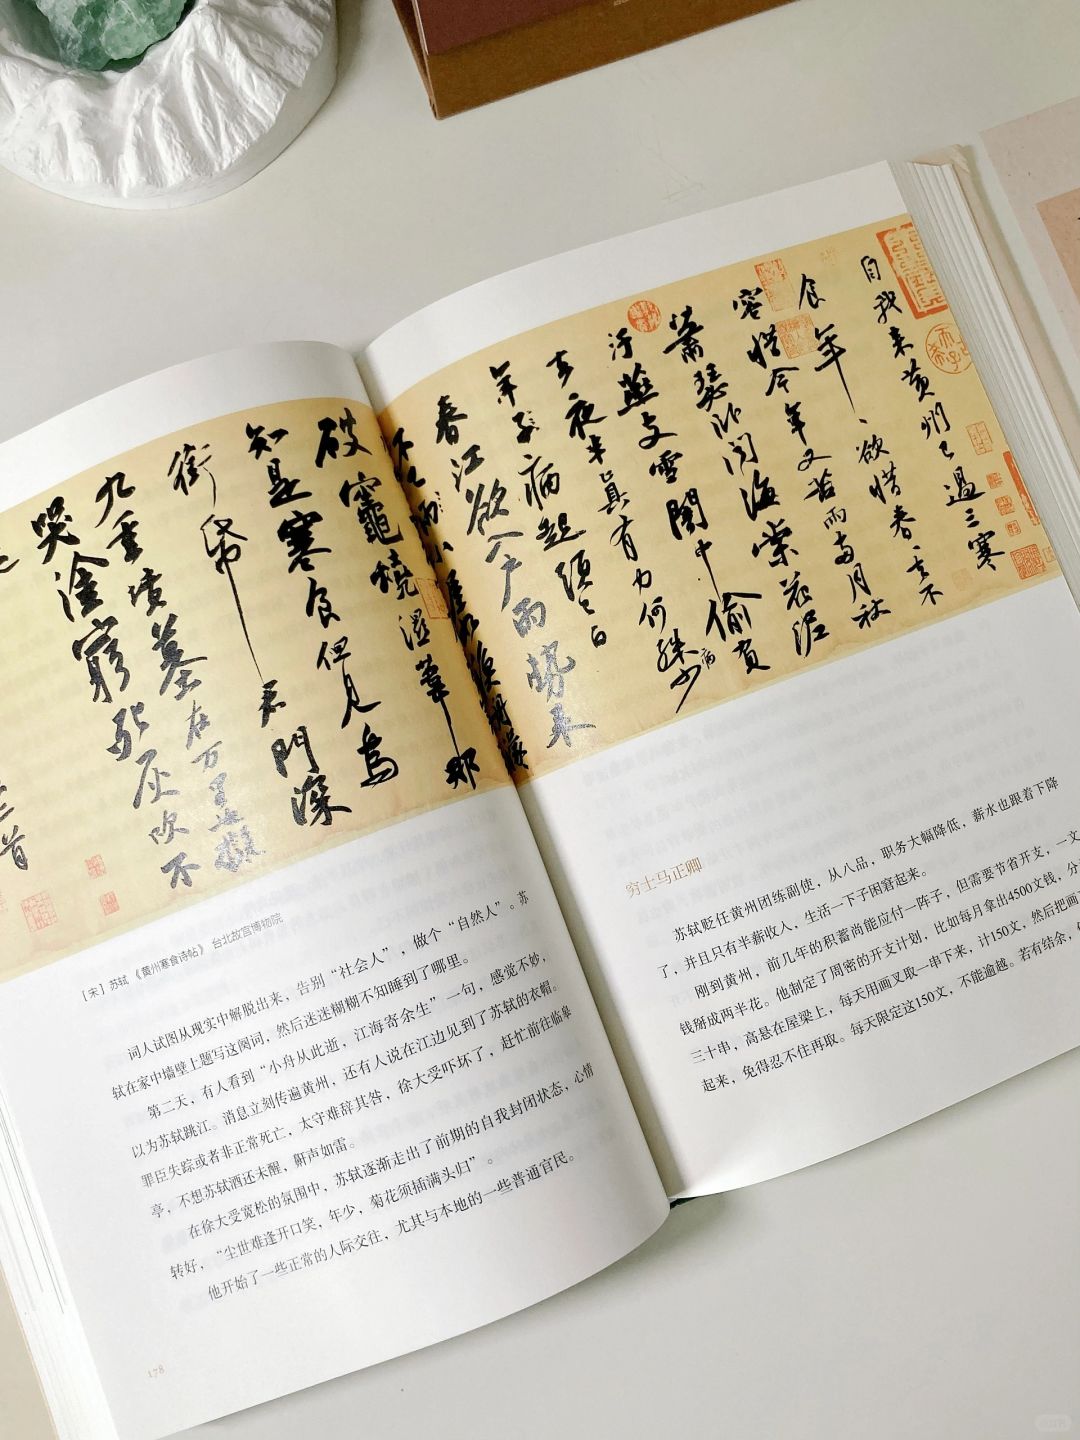 自我来黄州已過三寒
食年〻欲惜春〻去不
容惜今年又苦雨兩月秋
蕭瑟卧聞海棠花泥
汙燕支雪闇中偷負
去夜半真有力何殊少
病
年子病起頭已白
春江欲入户雨勢来
不已雨小屋如漁舟濛
破竈燒濕葦那
知是寒食但見烏
銜帋君門深
九重墳墓在万里也擬
哭塗窮死灰吹不
二首
[宋] 苏轼 《黄州寒食诗帖》 台北故宫博物院
词人试图从现实中解脱出来，告别“社会人”，做个“自然人”。苏
轼在家中墙壁上题写这阕词，然后迷迷糊糊不知睡到了哪里。
第二天，有人看到“小舟从此逝，江海寄余生”一句，感觉不妙，
以为苏轼跳江。消息立刻传遍黄州，还有人说在江边见到了苏轼的衣帽。
罪臣失踪或者非正常死亡，太守难辞其咎，徐大受吓坏了，赶忙前往临皋
亭，不想苏轼酒还未醒，鼾声如雷。
在徐大受宽松的氛围中，苏轼逐渐走出了前期的自我封闭状态，心情
转好，“尘世难逢开口笑，年少，菊花须插满头归”。
他开始了一些正常的人际交往，尤其与本地的一些普通官民。
178
穷士马正卿
苏轼贬任黄州团练副使，从八品，职务大幅降低，薪水也跟着下降
了，并且只有半薪收入，生活一下子困窘起来。
刚到黄州，前几年的积蓄尚能应付一阵子，但需要节省开支，一文
钱掰成两半花。他制定了周密的开支计划，比如每月拿出4500文钱，分
三十串，高悬在屋梁上，每天用画叉取一串下来，计150文，然后把画
起来，免得忍不住再取。每天限定这150文，不能逾越。若有结余，